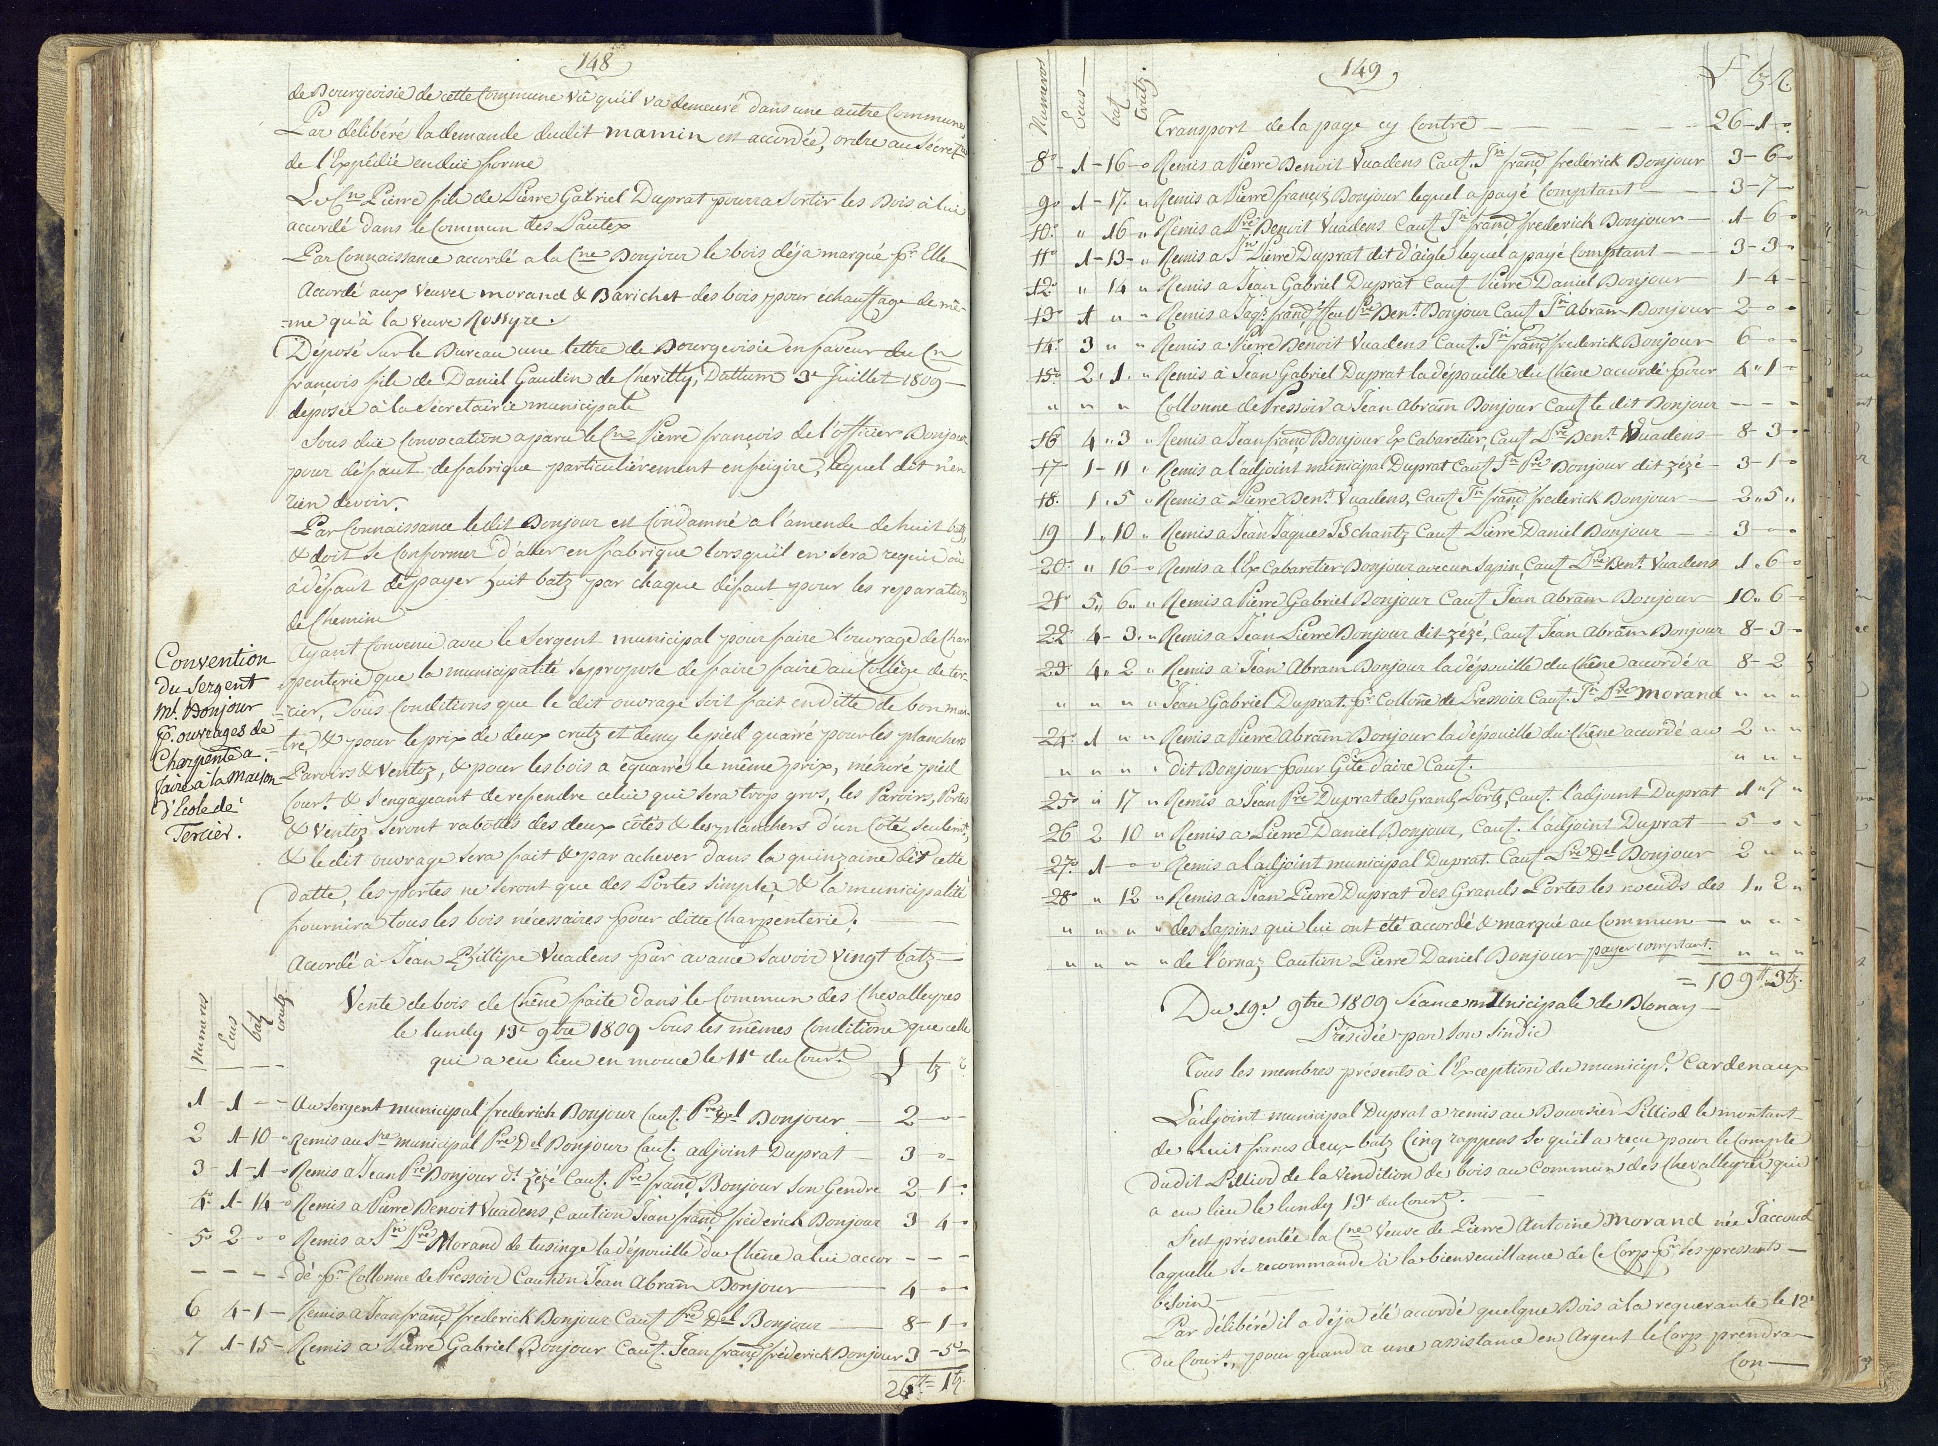 148
de Bourgeoisie de cette Commune vû qu'il va demeuré dans une autre Commune
Par délibéré la demande dudit mamin est accordée, ordre au Secret.re
de l'Expédié en due forme
Le C.n Pierre fils de Pierre Gabriel Duprat pourra Sortir les Bois à lui
accordé dans le Commun des Pautex
Par Connaissance accordé a la C.ne Bonjour le bois déja marqué p.r Elle
Accordé aux Veuves morand & Barichet des bois pour échauffage de mê-
=me qu'à la veuve Rossyre.
Déposé Sur le Bureau une lettre de Bourgeoisie en faveur du C.n
françois fils de Daniel Gaudin de Chevilly, Dattum 3.e Juillet 1809
déposée à la Sécretairie municipale
Sous due Convocation a paru le C.n Pierre françois de l'officier Bonjour
pour défaut de fabrique particulièrement en feigire, lequel dit n'en
rien devoir.
Par Connaissance le dit Bonjour est Condamné a l'amende de huit batz,
& doit se Conformer d'aller en fabrique lorsqu'il en sera requis ou
à défaut de payer huit batz par chaque défaut pour les reparations
de Chemins
Convention
du Sergent
m.l Bonjour
p.r ouvrages de
Charpente a
faire à la maison
d'Ecole de
Tercier.
Ayant Convenu avec le Sergent municipal pour faire l'ouvrage de Char
penterie que la municipalité se propose de faire faire au Collège de Ter-
=cier, Sous Conditions que le dit ouvrage soit fait en ditte de bon mai-
=tre, & pour le prix de deux crutz et demy le pied quarré pour les planchers
Parvirs & Ventoz, & pour les bois a équarrés le même prix, mesuré pied
Cour.t & s'engageant de refendre celui qui sera trop gros, les Parvirs, Portes
& Ventoz seront rabottés des deux côtés & les planchers d'un Côté seulem.t,
& le dit ouvrage sera fait & par achever dans la quinzaine dèt cette
datte, les portes ne seront que des Portes simples, & la municipalité
fournira tous les bois nécessaires pour ditte Charpenterie.
Accordé à Jean Phillipe Vuadens par avance savoir vingt batz
Vente de bois de Chêne faite dans le Commun des Chevalleyres
le lundy 13.e 9bre 1809 Sous les mêmes Conditions que celle
qui a eu lieu en mouce le 11.e du Cour.t L bz
Numeros Ecus batz crutz
1 1 - - Au Sergent municipal frederich Bonjour Caut. P.re D.el Bonjour 2 - -
2 1-10 - Remis au S.re municipal P.re D.el Bonjour Caut. adjoint Duprat 3 - -
3 - 1-1 - Remis a Jean P.re Bonjour d.t zézé Caut. P.re franç. Bonjour son Gendre 2 - 1 -
4.o 1-14 - Remis a Pierre Benoit Vuadens, Caution Jean franç frédérick Bonjour 3 - 4 -
5.o 2 - - Remis a J.n P.re Morand de tusinge la dépouille du Chêne a lui accor - - -
- - - - dé p.r Collonne de Pressoir Caution Jean Abram Bonjour 4 - -
6 4-1 - Remis a Jean franç frederick Bonjour Caut P.re D.el Bonjour 8 - 1 -
7 1-15 - Remis a Pierre Gabriel Bonjour Caut. Jean franç frédérick Bonjour 3 - 5 -
26 = 1 bz.
149
Numeros Ecus batz Crutz L bz
Transport de la page cy Contre 26-1-
8.o 1-16 - Remis a Pierre Benoit Vuadens Caut. J.n franç frederick Bonjour 3-6-
9.o 1-17 " Remis a Pierre françs Bonjour lequel a payé Comptant 3-7-
10.o " 16 " Remis a P.re Benoit Vuadens Caut J.n franç frederick Bonjour 1-6-
11.o 1-13 - " Remis a J.n Pierre Duprat dit d'aigle lequel a payé Comptant 3-3-
12.o " 14 " Remis a Jean Gabriel Duprat Caut Pierre Daniel Bonjour 1-4-
13.o 1 " " Remis a Jaq. franç ffeu P.re Ben.t Bonjour Caut J.n Abram Bonjour 2 - -
14.o 3 " " Remis a Pierre Benoit Vuadens Caut. J.n franç frederick Bonjour 6 - -
15.o 2 " 1 " Remis à Jean Gabriel Duprat la dépouille du Chêne accordé pour 4 " 1 -
" " " Collonne de Pressoir a Jean Abram Bonjour Caut le dit Bonjour - - -
16.o 4 " 3 " Remis a Jean franç Bonjour Ex Cabaretier, Caut P.re Ben.t Vuadens 8-3-
17 1-11 " Remis a l'adjoint municipal Duprat Caut J.n P.re Bonjour dit zézé 3-1-
18. 1 " 5 " Remis à Pierre Ben.t Vuadens, Caut J.n franç frederick Bonjour 2 " 5 "
19 1 " 10 " Remis a Jean Jaques Tschantz Caut Pierre Daniel Bonjour 3 - -
20.o " 16 - Remis a l'Ex Cabaretier Bonjour avec un Sapin, Caut P.re Ben.t Vuadens 1 " 6 -
21.o 5 " 6 " " Remis a Pierre Gabriel Bonjour Caut Jean Abram Bonjour 10 " 6 -
22.o 4 - 3 " " Remis a Jean Pierre Bonjour dit zézé, Caut Jean Abram Bonjour 8-3-
23.o 4 " 2 " Remis a Jean Abram Bonjour la dépouille du Chêne accordé a 8-2
" " " " Jean Gabriel Duprat p.r Collonne de Pressoir Caut. J.n P.re Morand " " "
24.o 1 " " Remis a Pierre Abram Bonjour la dépouille du Chêne accordé au 2 " "
" " " " dit Bonjour pour Gîte d'aire Caut. " " "
25.o " 17 " Remis a Jean P.re Duprat des Grands Portes, Caut. l'adjoint Duprat 1 " 7 "
26 2 10 " Remis a Pierre Daniel Bonjour, Caut. l'adjoint Duprat 5 - -
27.o 1 - - Remis a l'adjoint municipal Duprat. Caut P.re D.el Bonjour 2 " "
28.o " 12 " Remis a Jean Pierre Duprat des Grands Portes les noeuds des 1 " 2 "
" " " " des Sapins qui lui ont été accordé & marqué au Commun " " "
" " " " de l'ornaz Caution Pierre Daniel Bonjour payer comptant. " " "
= 109 " 3 bz.
Du 19.e 9bre 1809 Séance municipale de Blonay
Présidée par Son Sindic
Tous les membres présents à l'Exception du municip.l Cardenaux
L'adjoint municipal Duprat a remis au Boursier Pilliod le montant
de Huit francs deux batz Cinq rappens Se qu'il a reçu pour le Compte
dudit Pilliod de la Vendition de bois au Commun des Chevalleyres qui
a eu lieu le lundy 13.e du Cour.t.
S'est présentée la C.ne Veuve de Pierre Antoine Morand née Jaccoud
laquelle se recommande à la bienveuillance de le Corp p.r Ses pressants
besoin
Par délibéré il a déja été accordé quelque Bois à la requerante le 12.e
du Cour.t, pour quand a une assistance en Argent le Corp prendra
Con-